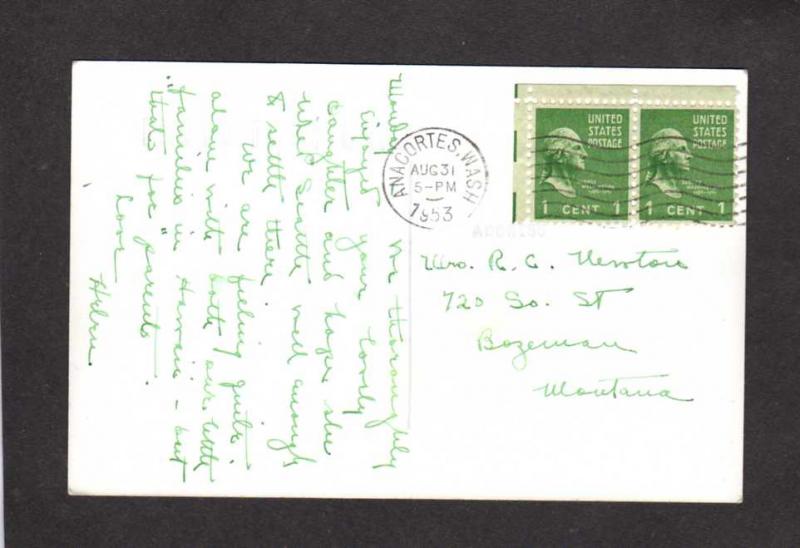 Monday - We thoroughly
Enjoyed your lovely
daughter and hope she
likes Seattle well enough
& settle there.
We are feeling quite
alone with both our little
"families" in Hawaii - but
thats for "parents".
Love
Helen
ANACORTES, WASH
AUG 31
5-PM
1953
UNITED
STATES
POSTAGE
1 CENT 1
UNITED
STATES
POSTAGE
1 CENT 1
ADDRESS
Mrs. R. C. Newton
720 So. St
Bozeman
Montana